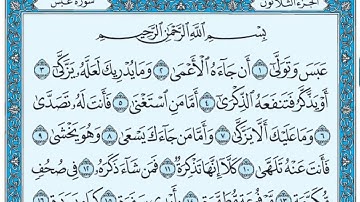 الجزء الثلاثون سورة عبس
بِسْمِ اللَّهِ الرَّحْمَٰنِ الرَّحِيمِ
عَبَسَ وَتَوَلَّىٰٓ ١ أَن جَآءَهُ ٱلْأَعْمَىٰ ٢ وَمَا يُدْرِيكَ لَعَلَّهُۥ يَزَّكَّىٰٓ ٣
أَوْ يَذَّكَّرُ فَتَنفَعَهُ ٱلذِّكْرَىٰٓ ٤ أَمَّا مَنِ ٱسْتَغْنَىٰ ٥ فَأَنتَ لَهُۥ تَصَدَّىٰ
٦ وَمَا عَلَيْكَ أَلَّا يَزَّكَّىٰ ٧ وَأَمَّا مَن جَآءَكَ يَسْعَىٰ ٨ وَهُوَ يَخْشَىٰ ٩
فَأَنتَ عَنْهُ تَلَهَّىٰ ١٠ كَلَّآ إِنَّهَا تَذْكِرَةٌ ١١ فَمَن شَآءَ ذَكَرَهُۥ ١٢ فِى صُحُفٍ
مُّكَرَّمَةٍ ١٣ مَّرْفُوعَةٍ مُّطَهَّرَةٍۭ ١٤ بِأَيْدِى سَفَرَةٍ ١٥ كِرَامٍۭ بَرَرَةٍ ١٦